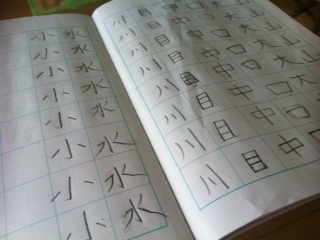 小 水
小 水
小 水
小 水
小 水
小 水
小 水
川 目 中 口 大 山
川 目 中 口 大 山
川 目 中 口 大 山
川 目 中 口 大 山
川 目 中 口 大
川 目 中 口
川 目 中